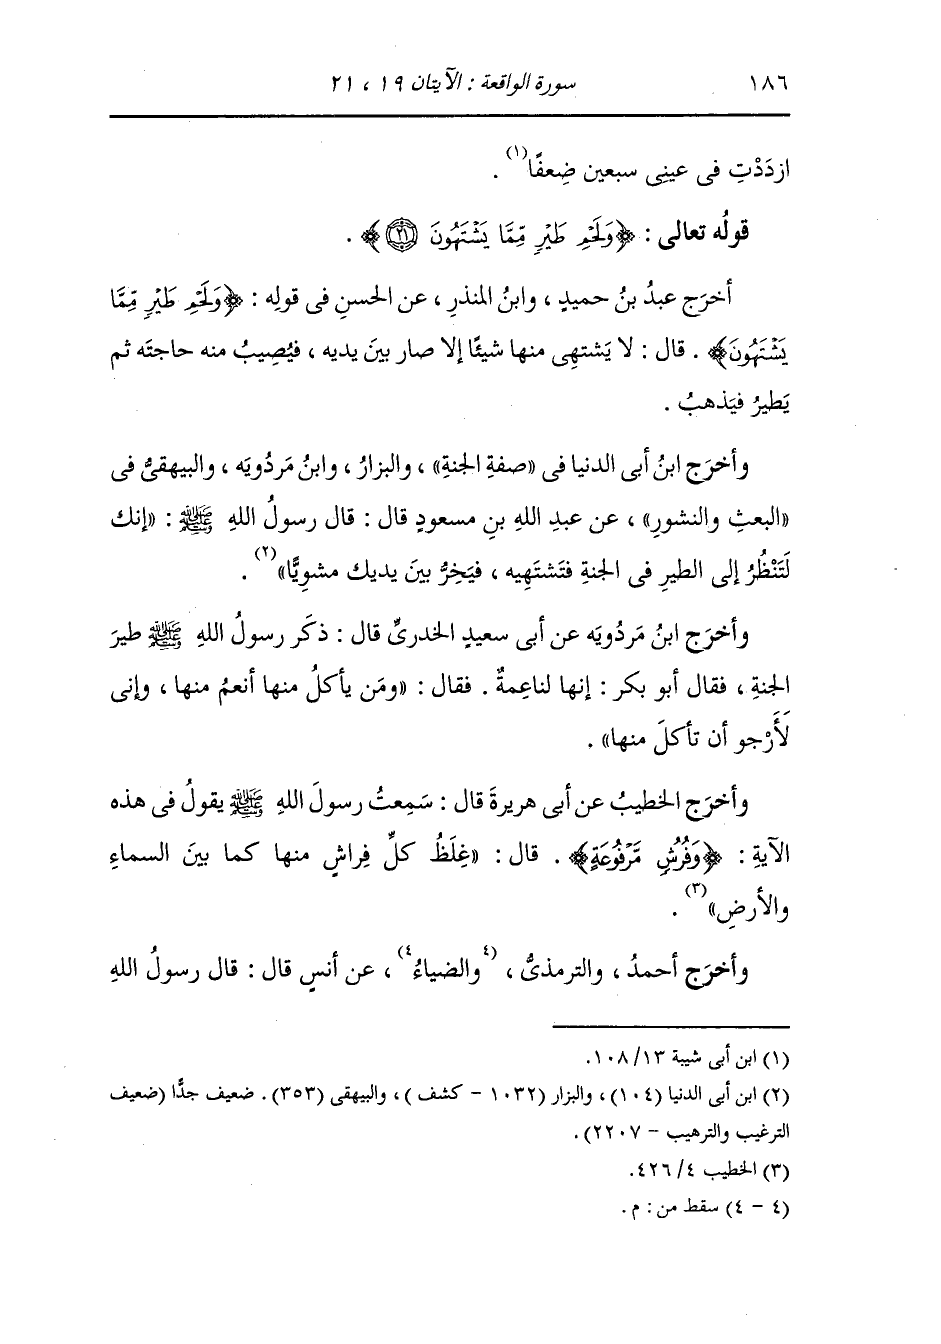 ١٨٦ سورة الواقعة : الآيتان ١٩ ، ٢١
ازدَدْتِ فى عينِى سبعين ضِعفًا(١) .
قولُه تعالى : ﴿وَلَحْمِ طَيْرٍ مِّمَّا يَشْتَهُونَ ٢١﴾ .
أخرَج عبدُ بنُ حميدٍ ، وابنُ المنذرِ ، عن الحسنِ فى قولِه : ﴿وَلَحْمِ طَيْرٍ مِّمَّا
يَشْتَهُونَ﴾ . قال : لا يَشتهِى منها شيئًا إلا صار بينَ يديه ، فيُصِيبُ منه حاجتَه ثم
يَطيرُ فيَذهبُ .
وأخرَج ابنُ أبى الدنيا فى «صفةِ الجنةِ» ، والبزارُ ، وابنُ مَردُويَه ، والبيهقىُّ فى
«البعثِ والنشورِ» ، عن عبدِ اللهِ بنِ مسعودٍ قال : قال رسولُ اللهِ ﷺ : «إنك
لَتَنْظُرُ إلى الطيرِ فى الجنةِ فتَشتَهِيه ، فيَخِرُّ بينَ يديك مشويًّا»(٢) .
وأخرَج ابنُ مَردُويَه عن أبى سعيدٍ الخدرىِّ قال : ذكَر رسولُ اللهِ ﷺ طيرَ
الجنةِ ، فقال أبو بكر : إنها لناعِمةٌ . فقال : «ومَن يأكلُ منها أنعمُ منها ، وإنى
لَأَرْجو أن تأكلَ منها» .
وأخرَج الخطيبُ عن أبى هريرةَ قال : سَمِعتُ رسولَ اللهِ ﷺ يقولُ فى هذه
الآيةِ : ﴿وَفُرُشٍ مَّرْفُوعَةٍ﴾ . قال : «غِلَظُ كلِّ فِراشٍ منها كما بينَ السماءِ
والأرضِ»(٣) .
وأخرَج أحمدُ ، والترمذىُّ ، (٤والضياءُ٤) ، عن أنسٍ قال : قال رسولُ اللهِ
(١) ابن أبى شيبة ١٣/ ١٠٨.
(٢) ابن أبى الدنيا (١٠٤) ، والبزار (١٠٣٢ - كشف ) ، والبيهقى (٣٥٣) . ضعيف جدًّا (ضعيف
الترغيب والترهيب - ٢٢٠٧).
(٣) الخطيب ٤/ ٤٢٦.
(٤ - ٤) سقط من : م .